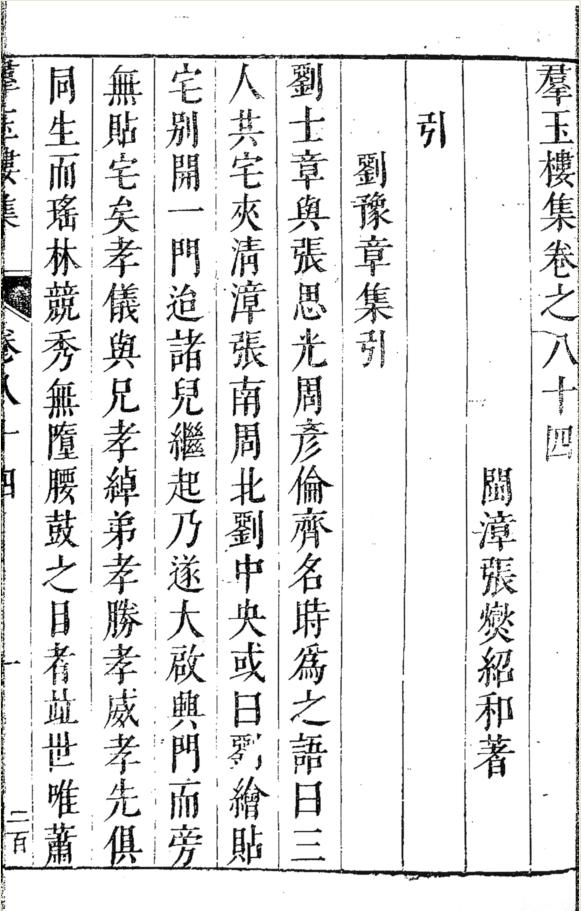 羣玉樓集卷之八十四
閩漳張燮紹和著
引
劉豫章集引
劉士章與張思光周彥倫齊名時爲之語曰三
人共宅夾清漳張南周北劉中央或曰劉繪貼
宅別開一門迨諸兒繼起乃遂大啟輿門而旁
無貼宅矣孝儀與兄孝綽弟孝勝孝威孝先俱
同生而瑤林競秀無墮腰鼓之目者竝世唯蕭
羣玉樓集
卷八十四
一
二百